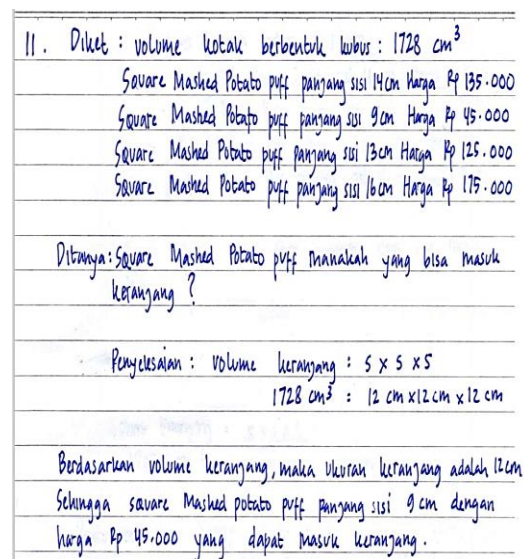 11. Diket : volume kotak berbentuk kubus : 1728 cm³
Square Mashed Potato puff panjang sisi 14 cm Harga Rp 135.000
Square Mashed Potato puff panjang sisi 9 cm Harga Rp 45.000
Square Mashed Potato puff panjang sisi 13 cm Harga Rp 125.000
Square Mashed Potato puff panjang sisi 16 cm Harga Rp 175.000
Ditanya : Square Mashed Potato puff manakah yang bisa masuk
keranjang ?
Penyelesaian : volume keranjang : s x s x s
1728 cm³ : 12 cm x 12 cm x 12 cm
Berdasarkan volume keranjang, maka ukuran keranjang adalah 12 cm
Sehingga square Mashed potato puff panjang sisi 9 cm dengan
harga Rp 45.000 yang dapat masuk keranjang.